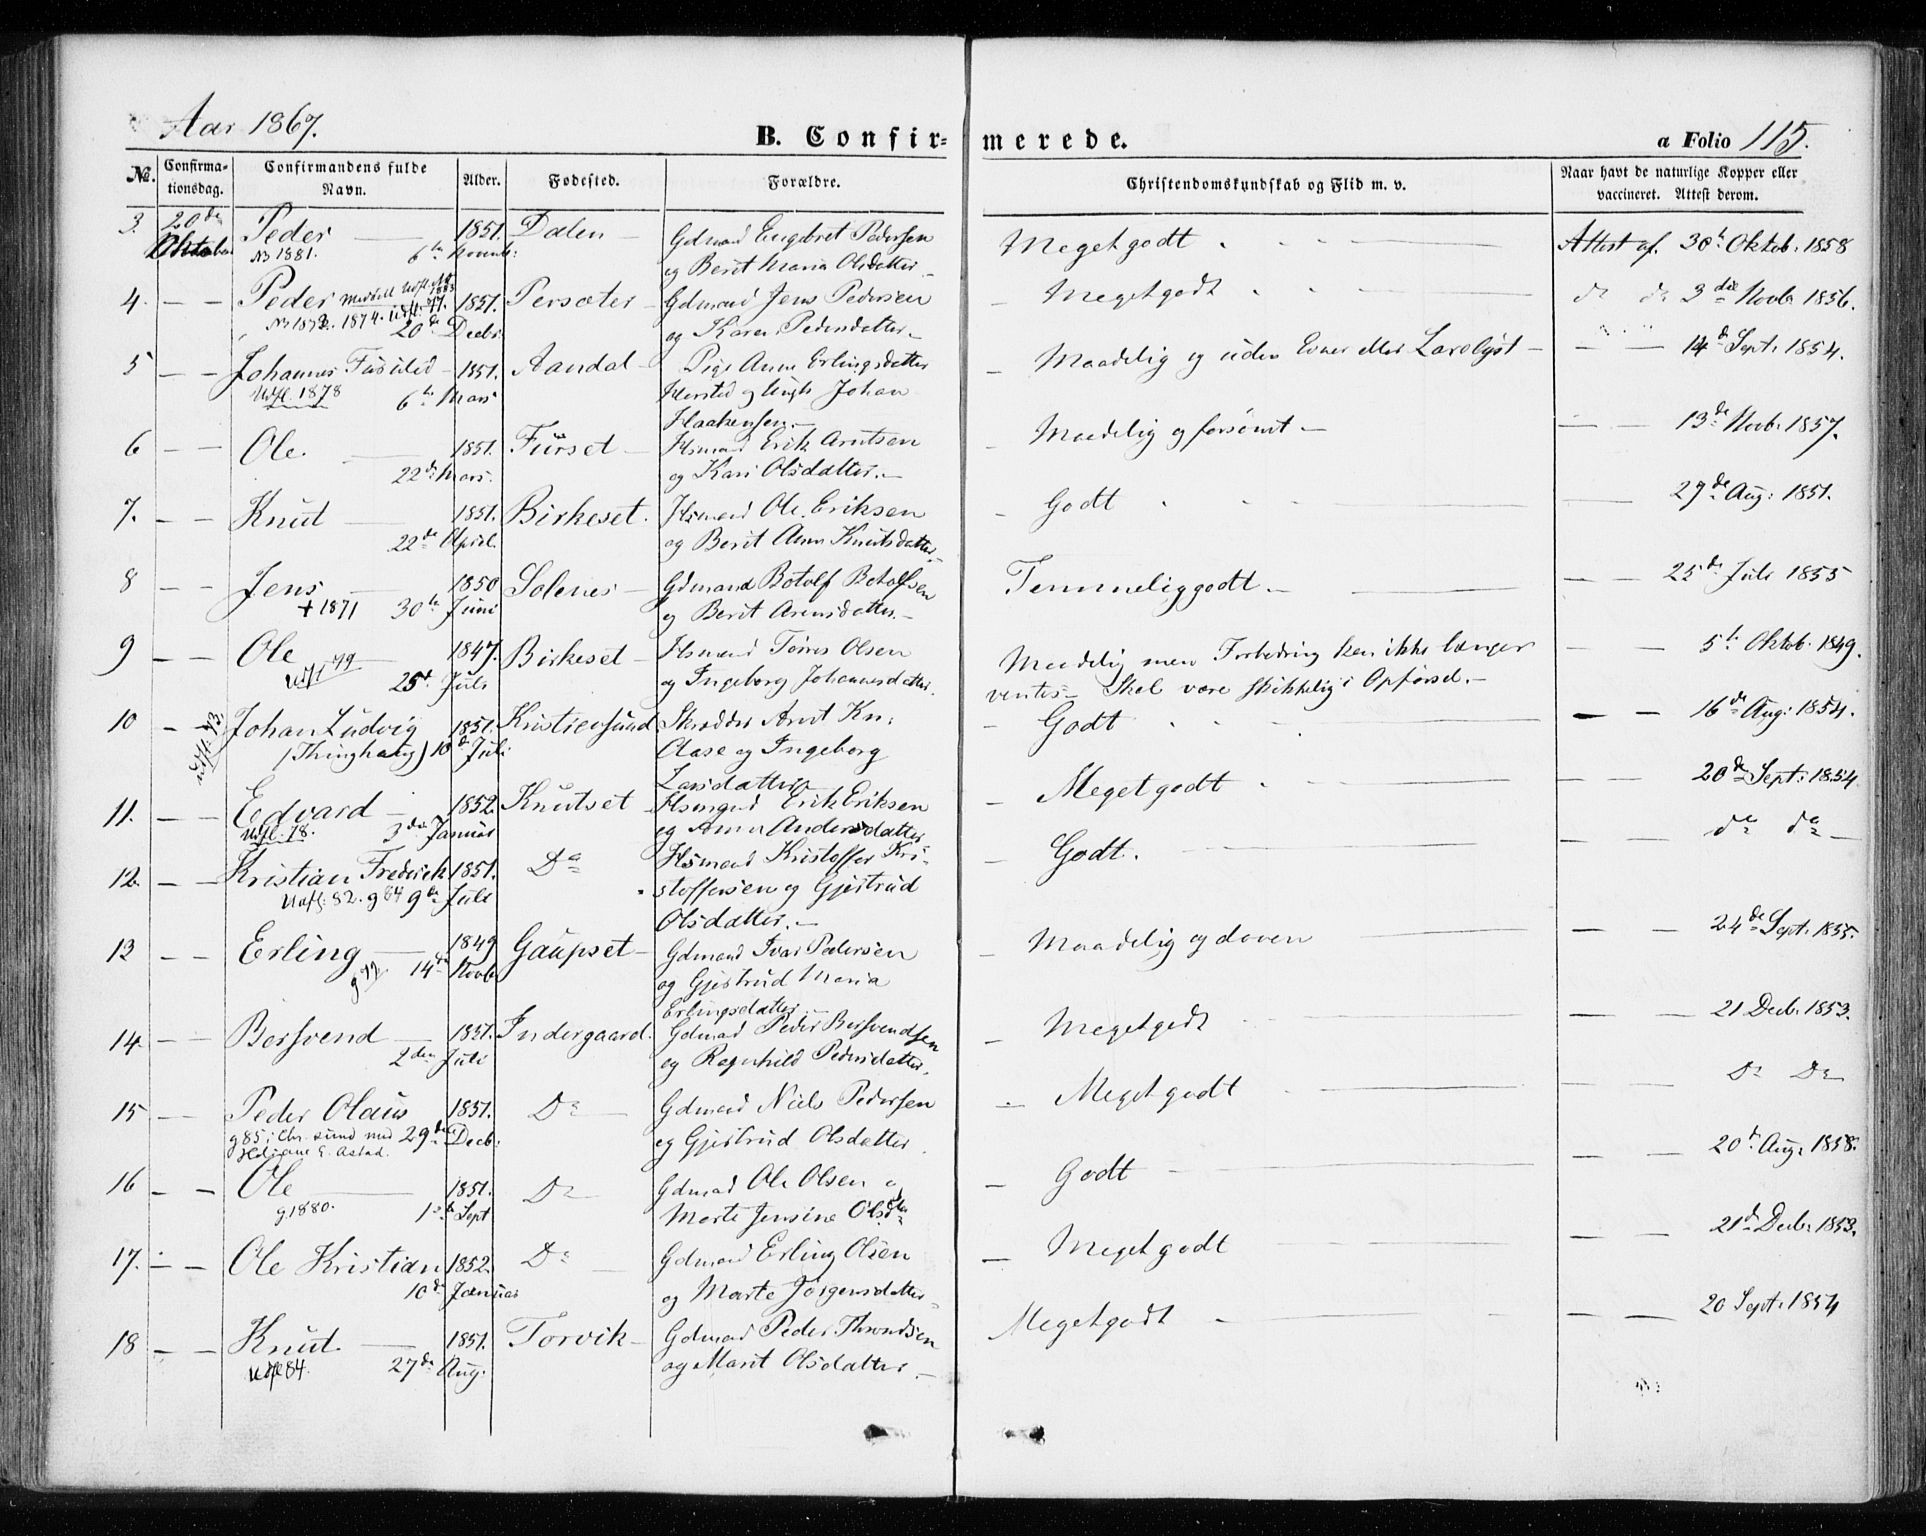 Aar 1867.
B. Confirmerede.
a Folio 115.
№. Confirmationsdag. Confirmandens fulde Navn. Alder. Fødested. Forældre. Christendomskundskab og Flid m. v. Naar havt de naturlige Kopper eller vaccineret. Attest derom.
3. 20de Peder — 1851. Dalen — Gdmand Engebret Pedersen Megetgodt Attest af. 30te Oktob. 1858
Oktober N3 1881. 6te Novemb: og Berit Maria Olsdatter —
4. — — Peder 1851. Persæter — Gdmand Jens Pedersen — Megetgodt do do 3die Novbr 1856.
N3 1873. 1874. Udfl. 77. 20de Decbr og Karen Pedersdatter —
5 — — Johannes Fusilid — 1851. Aandal — Pige Anne Erlingsdatter — Maadelig og uden Evner eller Lærelyst — — — 14de Sept. 1854.
Udfl. 1878 6te Mars Hersted og Ungk Johan
Haakensen —
6 — — Ole. — 1851. Furset — Hsmand Erik Arntsen — Maadelig og forsømt — — — 13de Novb. 1857.
22de Mars. og Kari Olsdatter. —
7. — — Knut — 1851. Birkeset. Hsmand Ole Eriksen — Godt — 29de Aug: 1851.
22de April. og Berit Anne Knutsdatter —
8 — — Jens — 1850 Solenes — Gdmand Botolf Botolfsen Temmeliggodt. — — — 25de Juli 1855
+ 1871 30te Juni og Berit Arensdatter. —
9 — — Ole — 1847. Birkeset — Hsmand Tøres Olsen Maadelig men Forbedring kan ikke længer — — 5te Oktob. 1849.
Udfl 79 25de Juli og Ingeborg Johannesdatter. ventes — Skal være skikkelig i Opførsel. —
10 — Johan Ludvig 1851. Kristiensund Skrædder Arnt Kn: — Godt — — 16de Aug: 1854.
(Thinghaug) 10de Juli Aase og Ingeborg
Larsdatter
11. — — Edvard — 1852. Knutset — Hsmand Erik Eriksen — Megetgodt — — 20de Sept: 1854
Udfl. 78. 3die Januar og Anne Andersdatter
12. — — Kristian Frederick 1851. Do Hsmand Kristoffer Kri- — Godt. — — do do —
Udfl: 82. g 84 9de Juli stoffersen og Gjertrud
Olsdatter. —
13 — — Erling — 1849 Gaupset — Gdmand Ivar Pedersen — Maadelig og doven — — — 24de Sept. 1855.
14de Novb og Gjertrud Maria
Erlingsdatter —
14. — — Bersvend — 1851. Indergaard. Gdmand Peder Bersvendsen — Megetgodt — — — 21 Decb. 1853.
2den Juli og Ragnhild Pedersdatter.
15 — — Peder Olaus 1851. Do — Gdmand Niels Pedersen — Megetgodt — — — Do Do
g 85 i Chr.sund med 29de Decb: og Gjertrud Olsdatter.
E. Astad.
16 — — Ole — 1851. Do — Gdmand Ole Olsen og — Godt — — — 20de Aug: 1858.
g. 1880. 1ste Sept Marte Jensine Olsdtr
17. — — Ole Kristian 1852. Do — Gdmand Erling Olsen — Megetgodt — — — 21de Decbr 1853.
10de Januar og Marte Jörgensdatter —
18 — — Knut — 1851. Torvik — Gdmand Peder Throndsen Megetgodt — — — 20 Sept. 1854
Udfl 84. 27de Aug. og Marit Olsdatter —